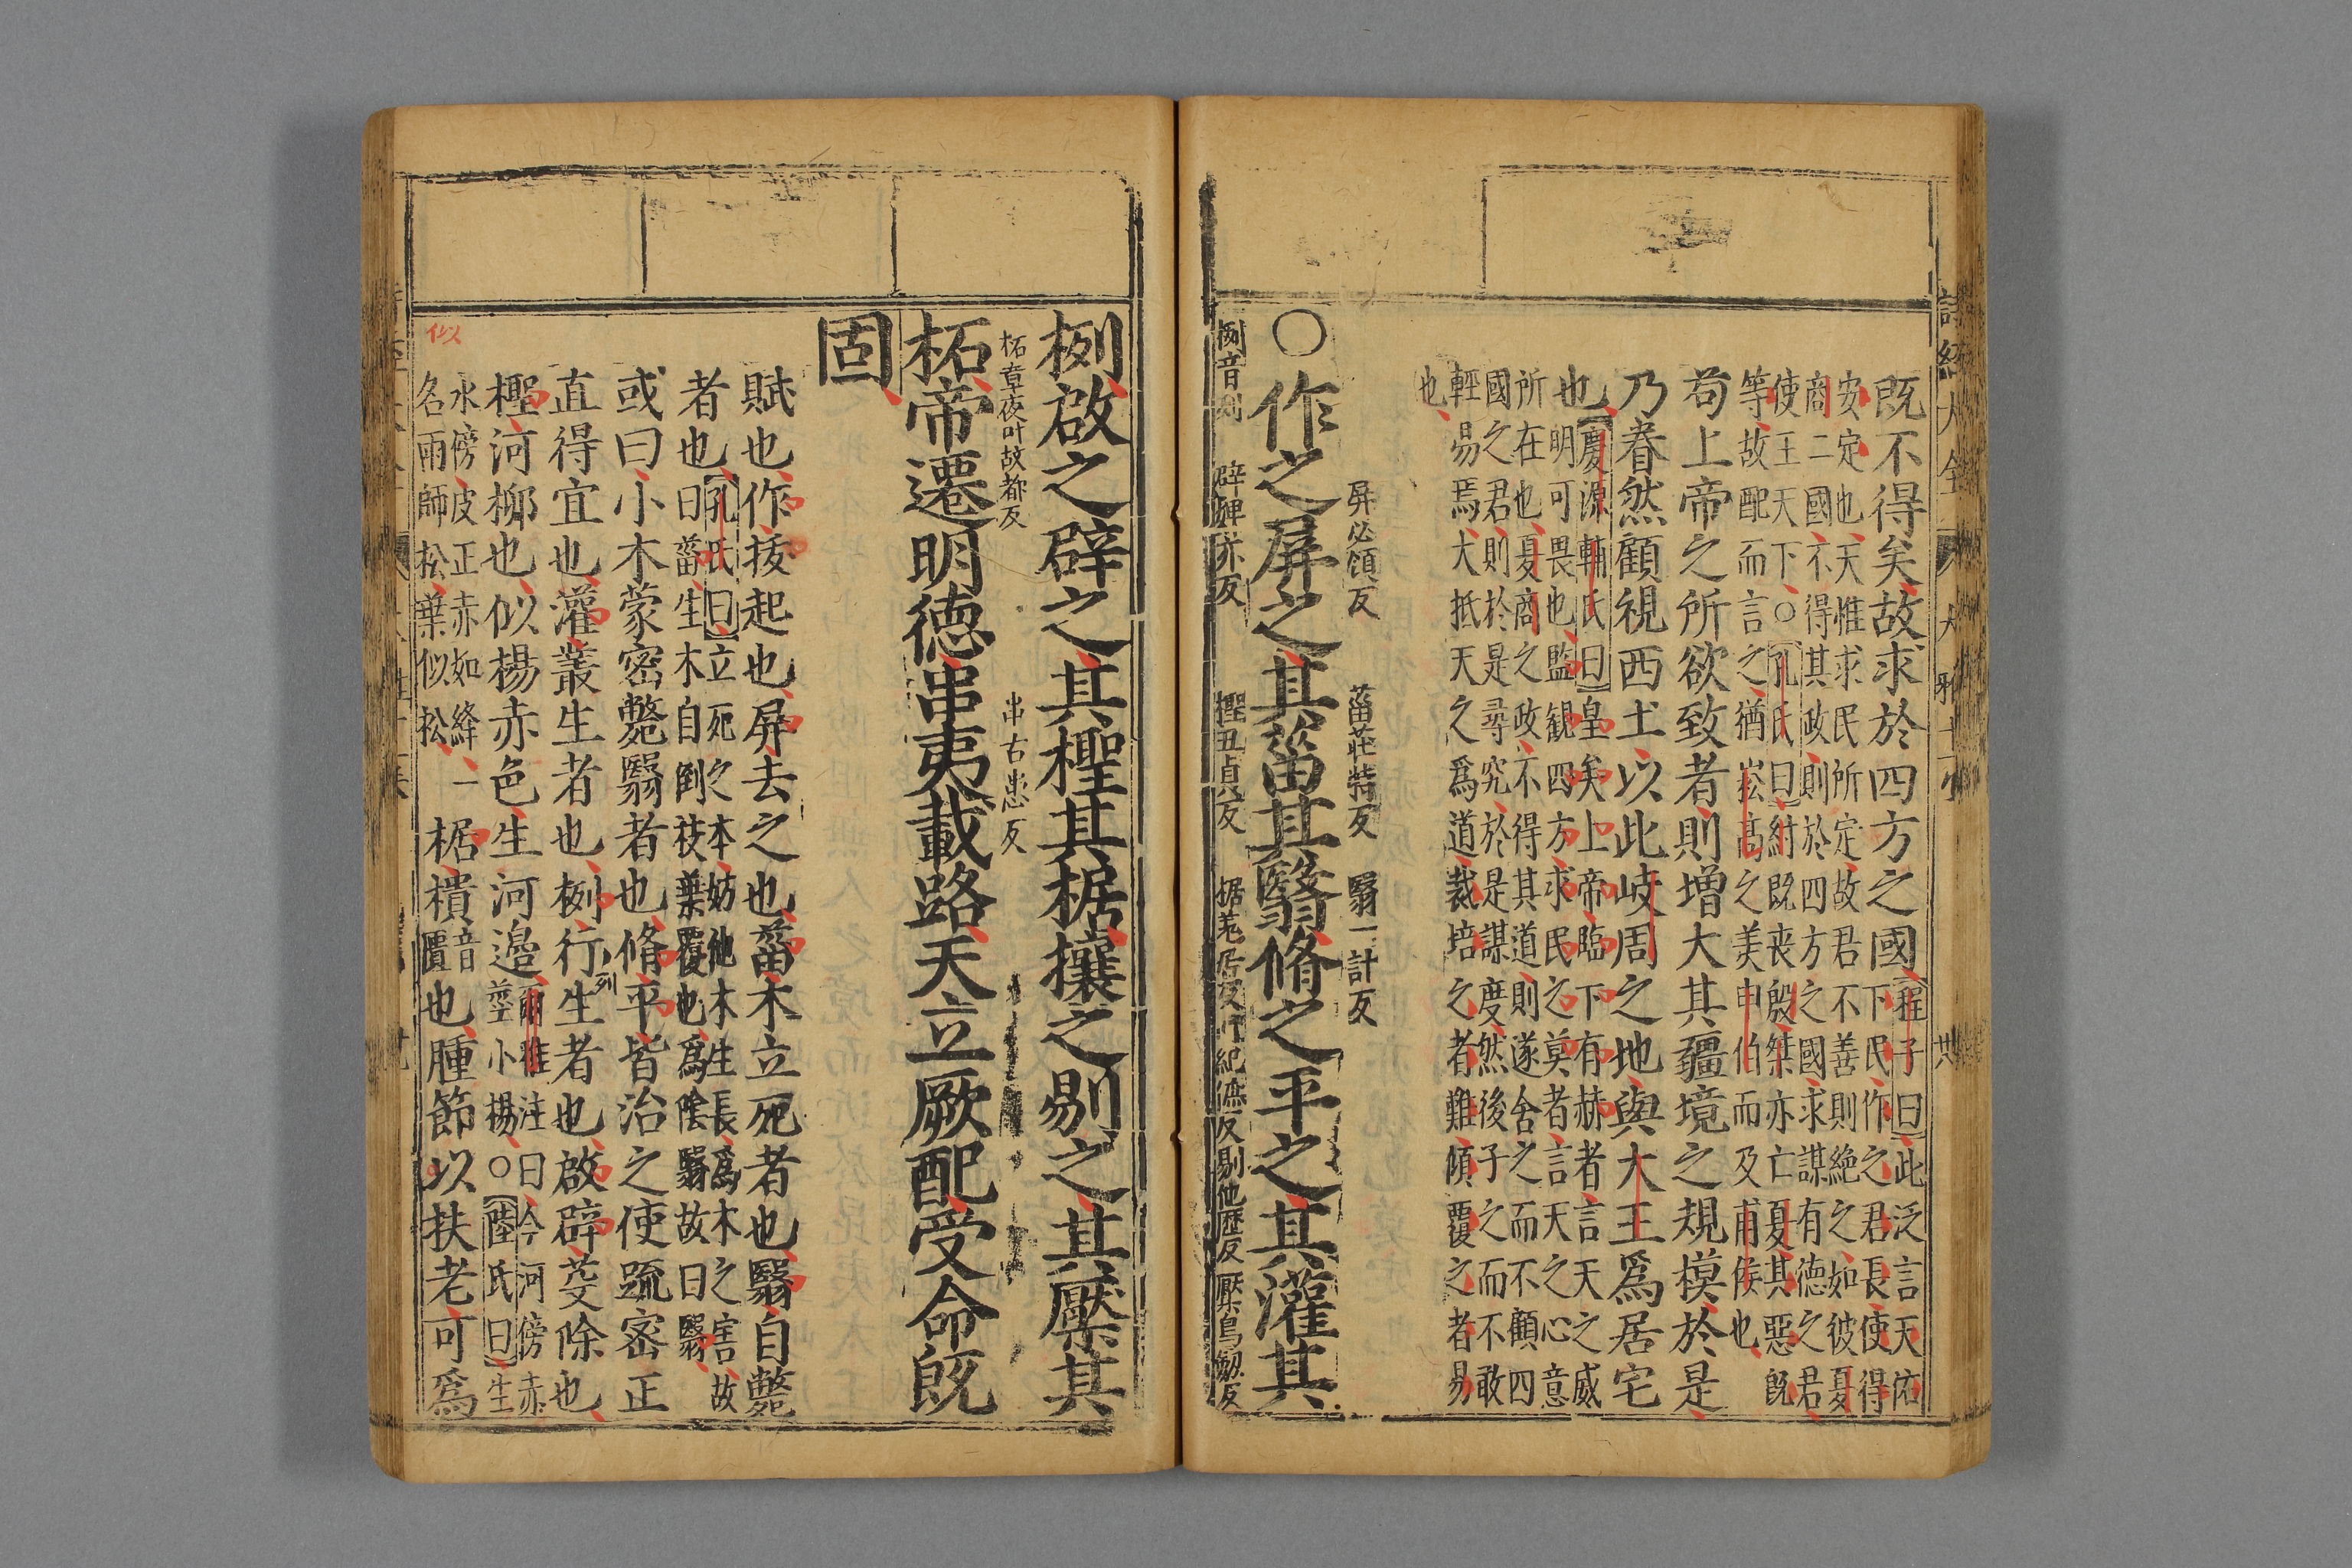 既不得矣故求於四方之國程子曰此泛言天佑
下民作之君長使得
安定也天惟求民所定故君不善則絶之如彼夏
商二國不得其政則於四方之國求謀有德之君
使王天下○孔氏曰紂既喪殷桀亦亡夏其惡既
等故配而言之猶崧高之美申伯而及甫侯也
苟上帝之所欲致者則增大其疆境之規模於是
乃眷然顧視西土以此岐周之地與大王爲居宅
也慶源輔氏曰皇矣上帝臨下有赫者言天之威
明可畏也監觀四方求民之莫者言天之心意
所在也夏商之政不得其道則遂舍之而不顧四
國之君則於是尋究於是謀度然後子之而不敢
輕易焉大抵天之爲道裁培之者難傾覆之者易
也
屏必領反 菑莊特反 翳一計反
○作之屏之其菑其翳脩之平之其灌其
栵音列 辟婢亦反 檉丑貞反 椐羌居反 紀庶反 剔他歷反 檿烏劒反
栵啟之辟之其檉其椐攘之剔之其檿其
柘章夜叶故都反 串古患反
柘帝遷明德串夷載路天立厥配受命既
固
賦也作拔起也屏去之也菑木立死者也翳自斃
者也孔氏曰立死之本妨他木生長爲木之害故
曰菑生木自倒枝葉覆也爲陰翳故曰翳
或曰小木蒙密斃翳者也脩平皆治之使疏密正
直得宜也灌叢生者也栵行生者也啟辟芟除也
列
檉河柳也似楊赤色生河邊爾雅注曰今河傍赤
莖小楊○陸氏曰生
水傍皮正赤如絳一
名雨師松葉似松椐樻音
匱也腫節以扶老可爲
似
詩經大全 大雅